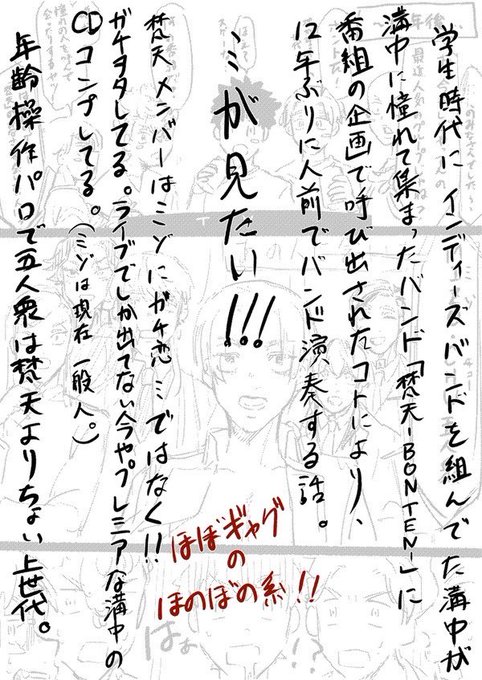 学生時代にインディーズバンドを組んでた溝中が
溝中に憧れて集まったバンド「梵天-BONTEN-」に
番組の企画で呼び出されたコトにより、
12年ぶりに人前でバンド演奏する話。
ミが見たい!!!
梵天メンバーはミゾにガチ恋ミではなく!!
ガチヲタしてる。ライブでしか出てない今やプレミアな溝中の
CDコンプしてる。(ミゾは現在一般人。)
年齢操作パロで五人衆は梵天よりちょい上世代。
ほぼギャグ
の
ほのぼの系!!